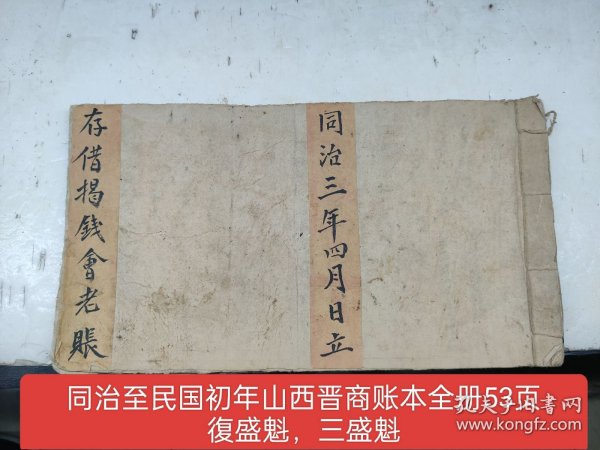 同治三年四月日立
存借揭錢會老賬
同治至民国初年山西晋商账本全册53页
復盛魁，三盛魁
孔夫子旧书网
www.kongfz.com